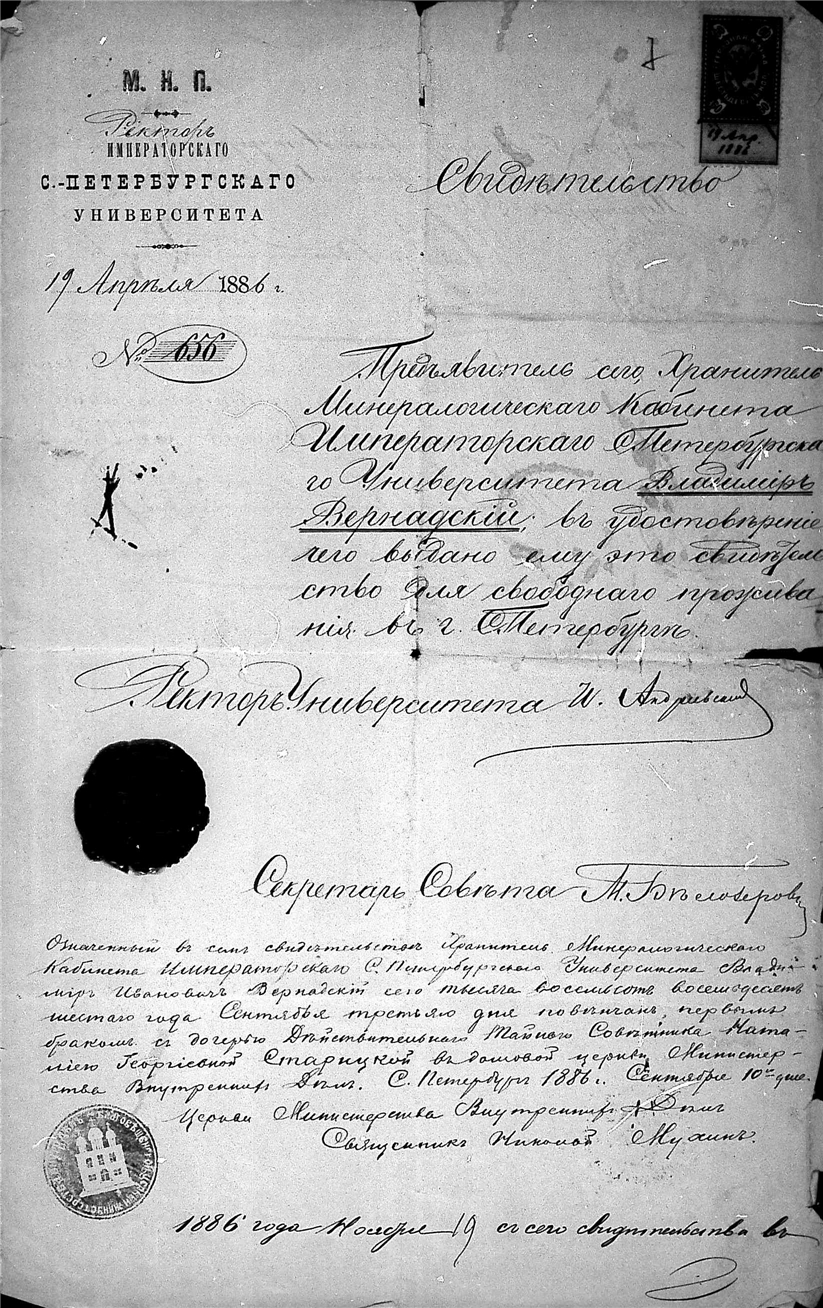 М. Н. П.
Ректоръ
ИМПЕРАТОРСКАГО
С.-ПЕТЕРБУРГСКАГО
УНИВЕРСИТЕТА
19 Апрѣля 1886 г.
№ 656
19 Апр.
1886
Свидѣтельство
Предъявитель сего, Хранитель
Минералогическаго Кабинета
Императорскаго СПетербургска
го Университета Владиміръ
Вернадскій, въ удостовѣреніе
чего выдано ему это свидѣтель
ство для свободнаго прожива
нія въ г. СПетербургѣ.
Ректоръ Университета И. Андреевскій
Секретарь Совѣта
Означенный въ семъ свидѣтельствѣ Хранитель Минералогическаго
Кабинета Императорскаго С. Петербургскаго Университета Влади-
міръ Ивановичъ Вернадскій сего тысяча восемьсотъ восемьдесятъ
шестаго года Сентября третьяго дня повѣнчанъ, первымъ
бракомъ, съ дочерью Дѣйствительнаго Тайнаго Совѣтника Ната-
ліею Георгіевной Старицкой въ домовой церкви Министер-
ства Внутреннихъ Дѣлъ. С. Петербургъ 1886 г. Сентября 10го дня.
Церкви Министерства Внутреннихъ Дѣлъ
Священникъ Николай Мухинъ.
1886 года Ноября 19 съ сего свидѣтельства въ